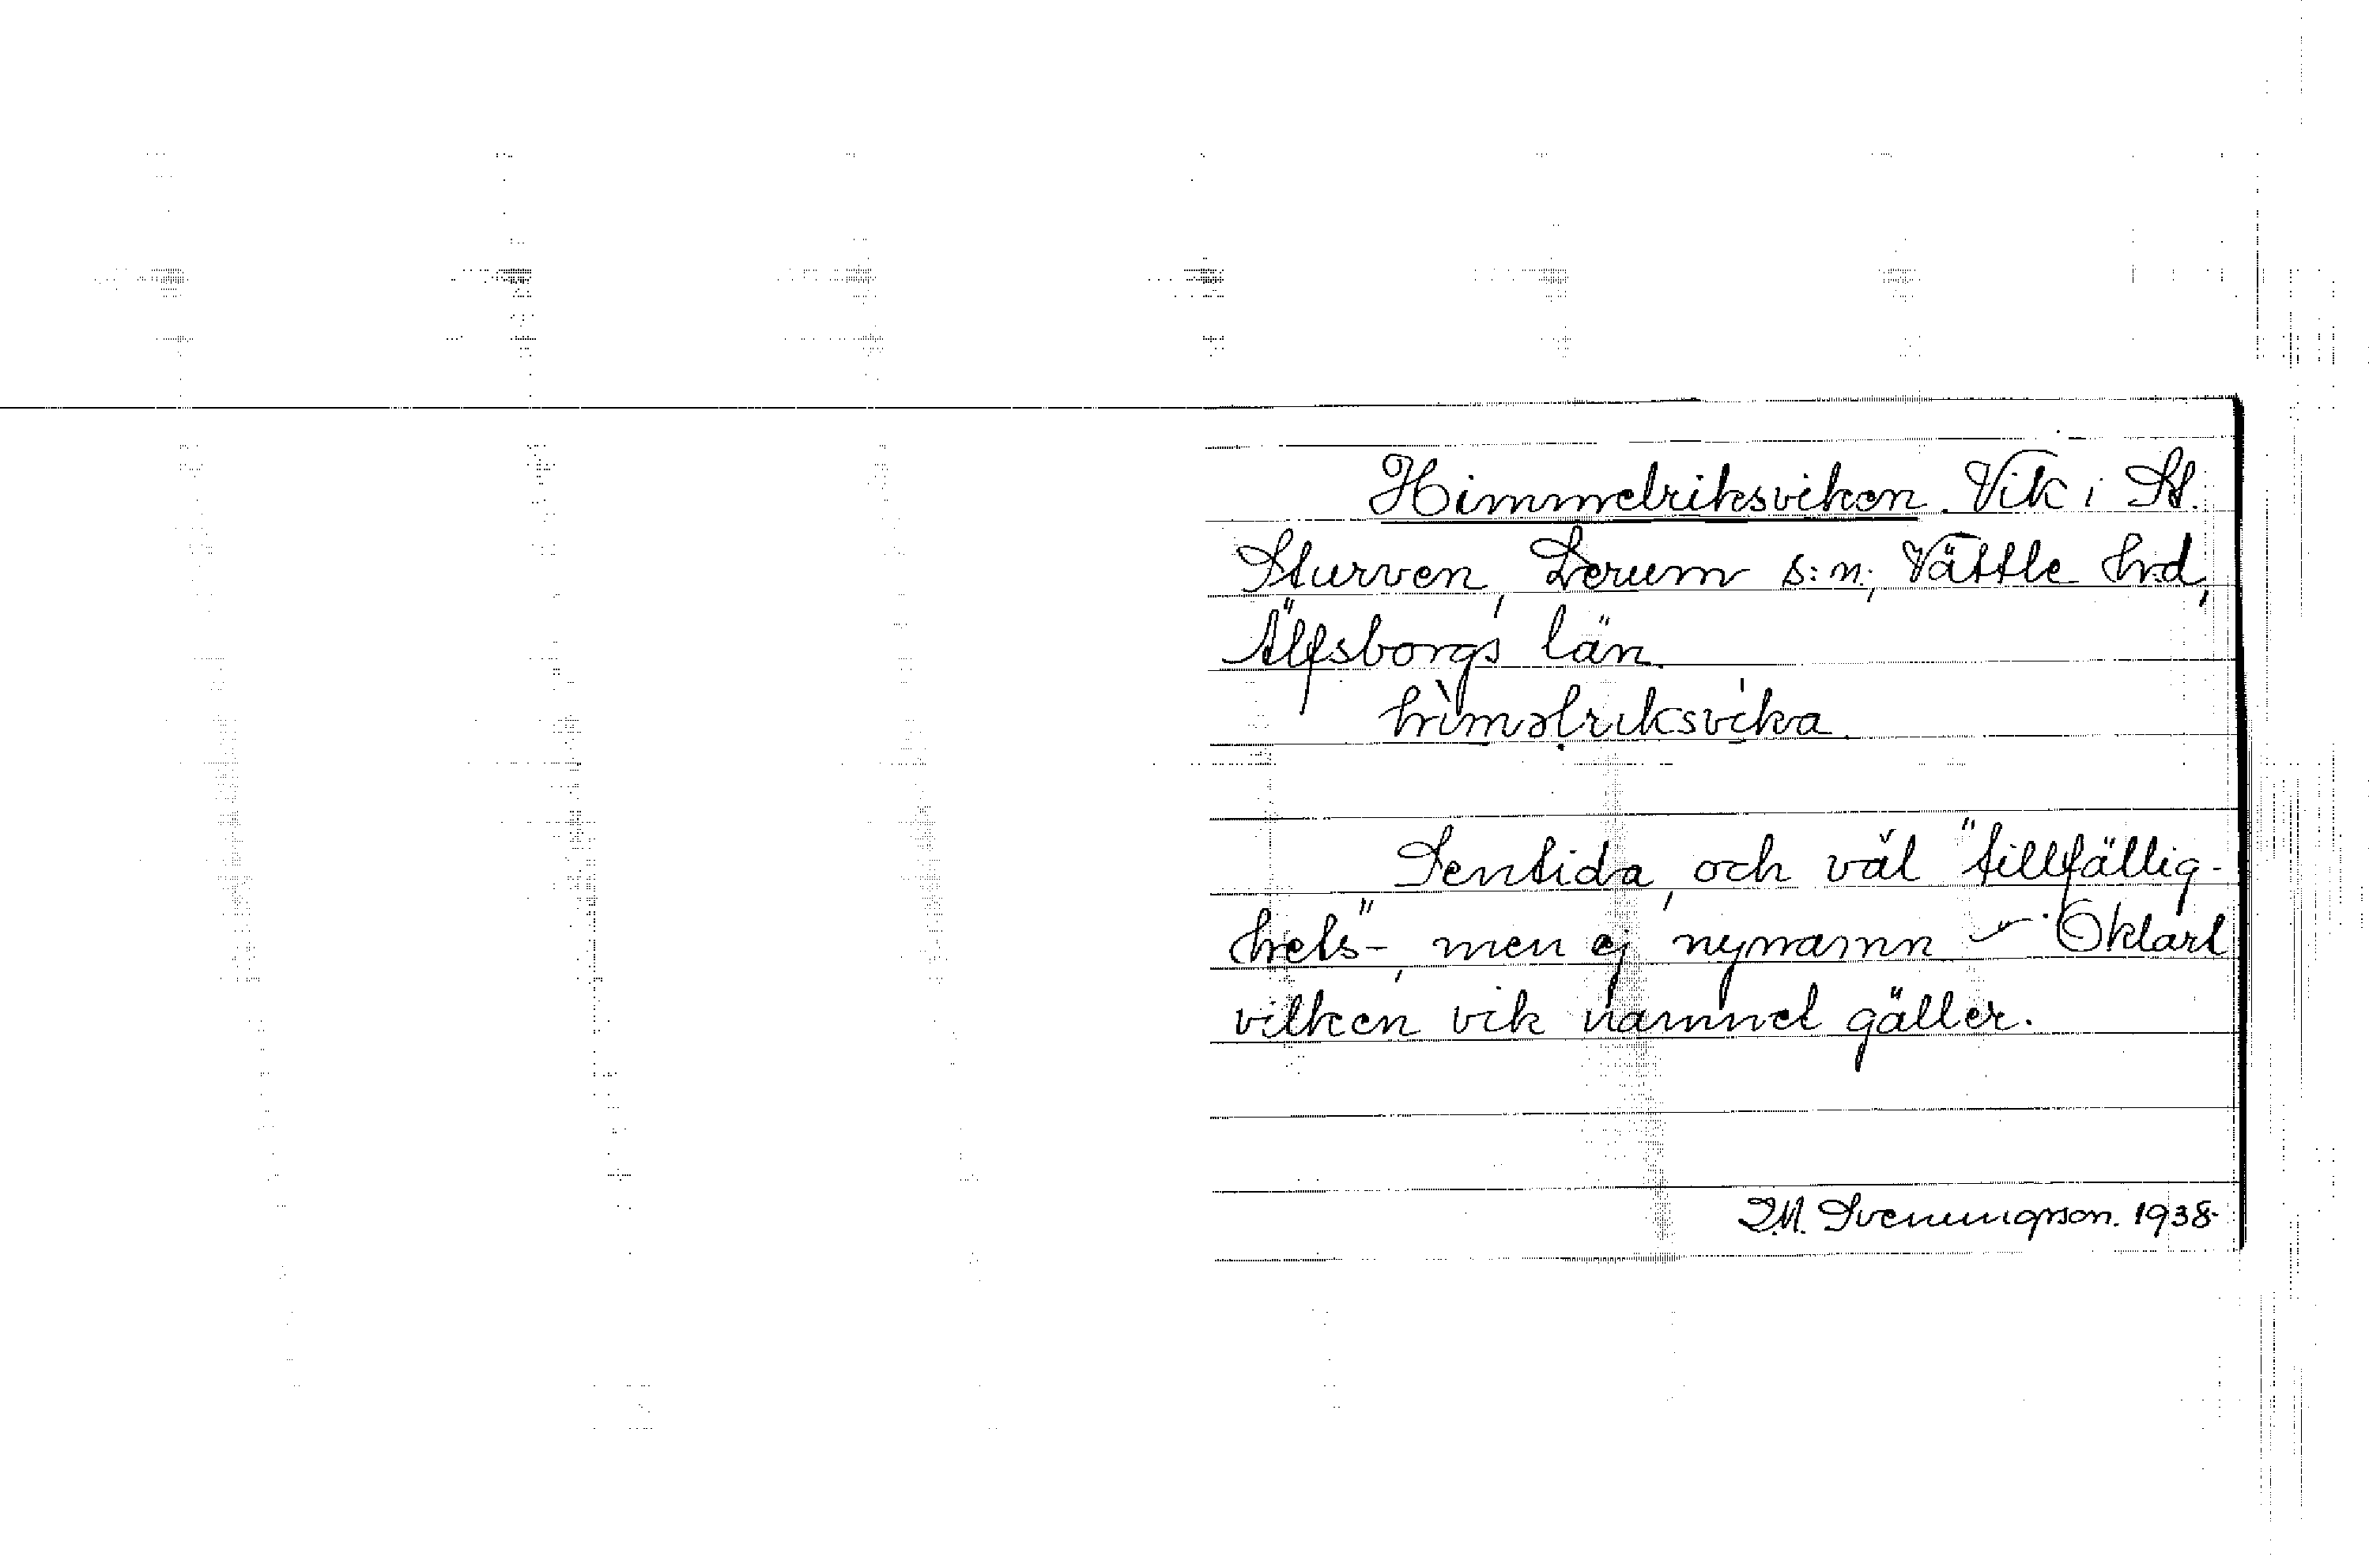 Himmelriksviken. Vik i St.
Sturven, Lerum s:n, Vättle hrd,
Älfsborgs län.
hìməlriksvika.
Sentida, och väl "tillfällig-
hets"-, men ej nynamn – Oklart
vilken vik namnet gäller.
I.M. Svenungson. 1938.